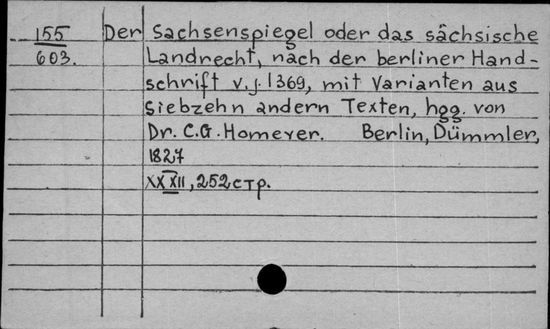 155 Der Sachsenspiegel oder das sächsische
603. Landrecht, nach der berliner Hand-
schrift v.j. 1369, mit Varianten aus
Siebzehn andern Texten, hgg. von
Dr. C.G. Homeyer. Berlin, Dümmler,
1827
XXXII, 252 стр.